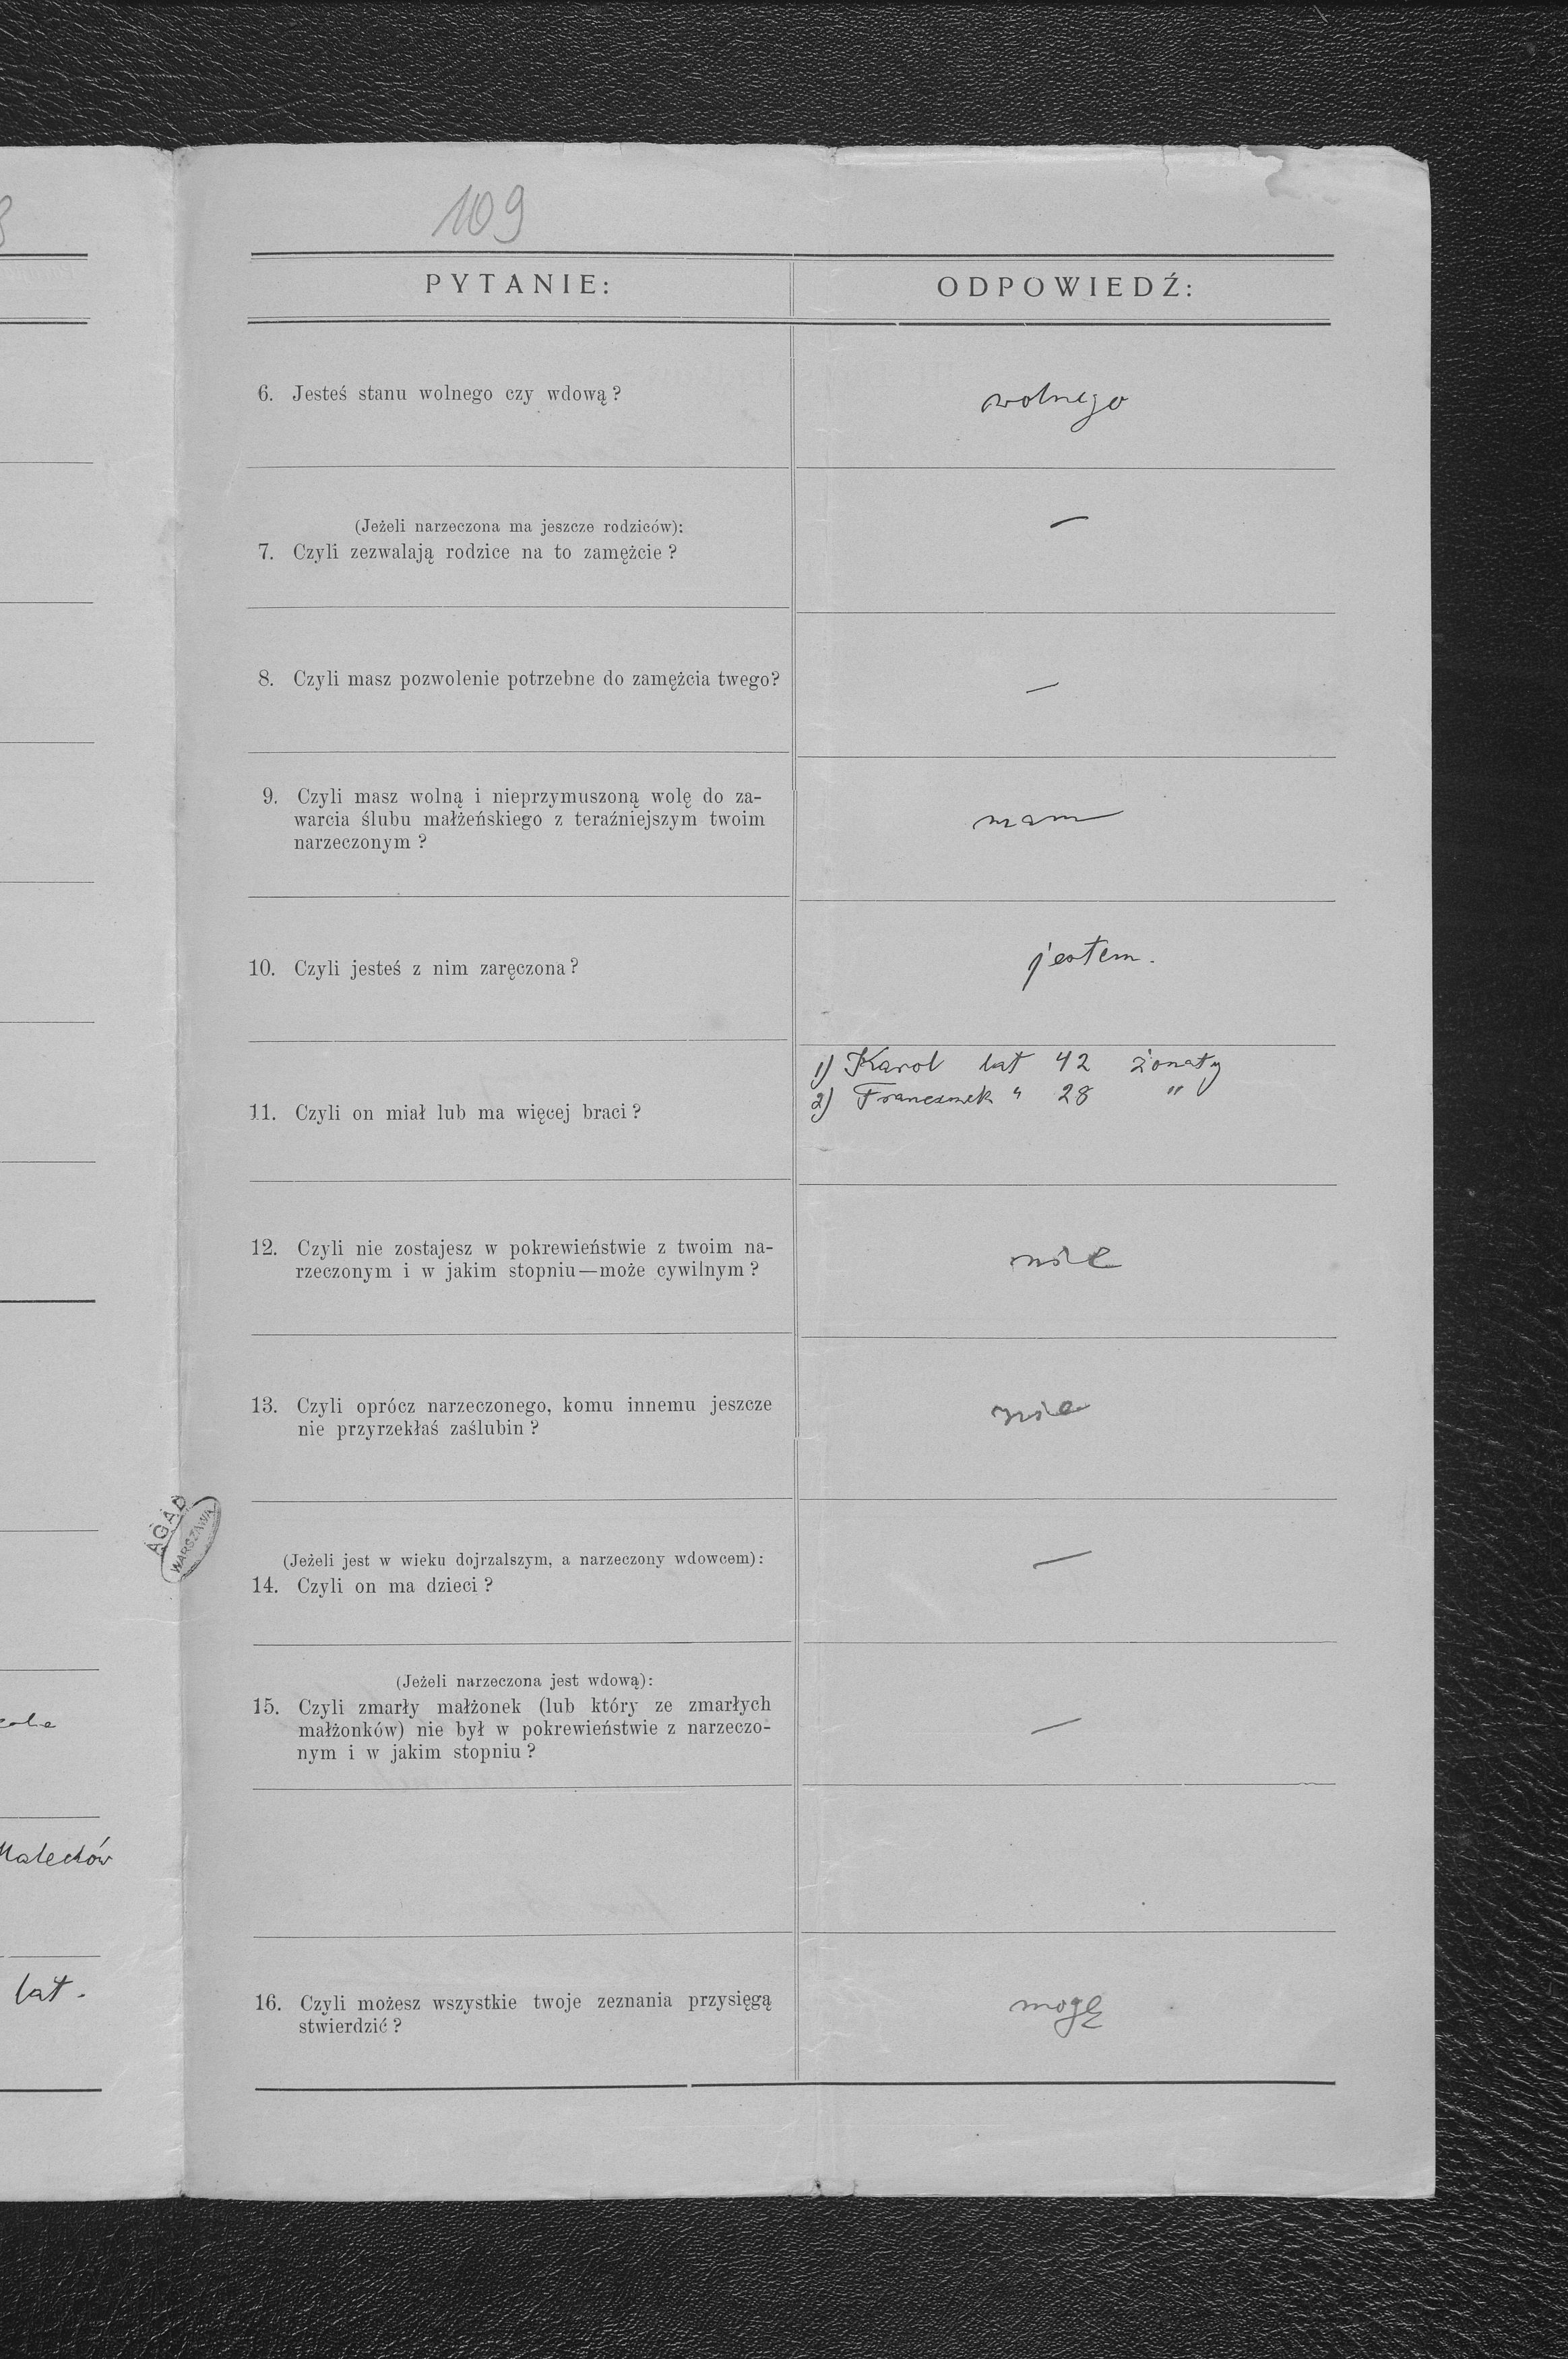 109
PYTANIE:
ODPOWIEDŹ:
6. Jesteś stanu wolnego czy wdową?
wolnego
(Jeżeli narzeczona ma jeszcze rodziców):
7. Czyli zezwalają rodzice na to zamężcie?
—
8. Czyli masz pozwolenie potrzebne do zamężcia twego?
—
9. Czyli masz wolną i nieprzymuszoną wolę do za-
warcia ślubu małżeńskiego z teraźniejszym twoim
narzeczonym?
mam
10. Czyli jesteś z nim zaręczona?
jestem.
11. Czyli on miał lub ma więcej braci?
1) Karol lat 42 żonaty
2) Franciszek " 28 "
12. Czyli nie zostajesz w pokrewieństwie z twoim na-
rzeczonym i w jakim stopniu—może cywilnym?
nie
13. Czyli oprócz narzeczonego, komu innemu jeszcze
nie przyrzekłaś zaślubin?
nie
(Jeżeli jest w wieku dojrzalszym, a narzeczony wdowcem):
14. Czyli on ma dzieci?
—
(Jeżeli narzeczona jest wdową):
15. Czyli zmarły małżonek (lub który ze zmarłych
małżonków) nie był w pokrewieństwie z narzeczo-
nym i w jakim stopniu?
—
16. Czyli możesz wszystkie twoje zeznania przysięgą
stwierdzić?
mogę
AGAD
WARSZAWA
lat.